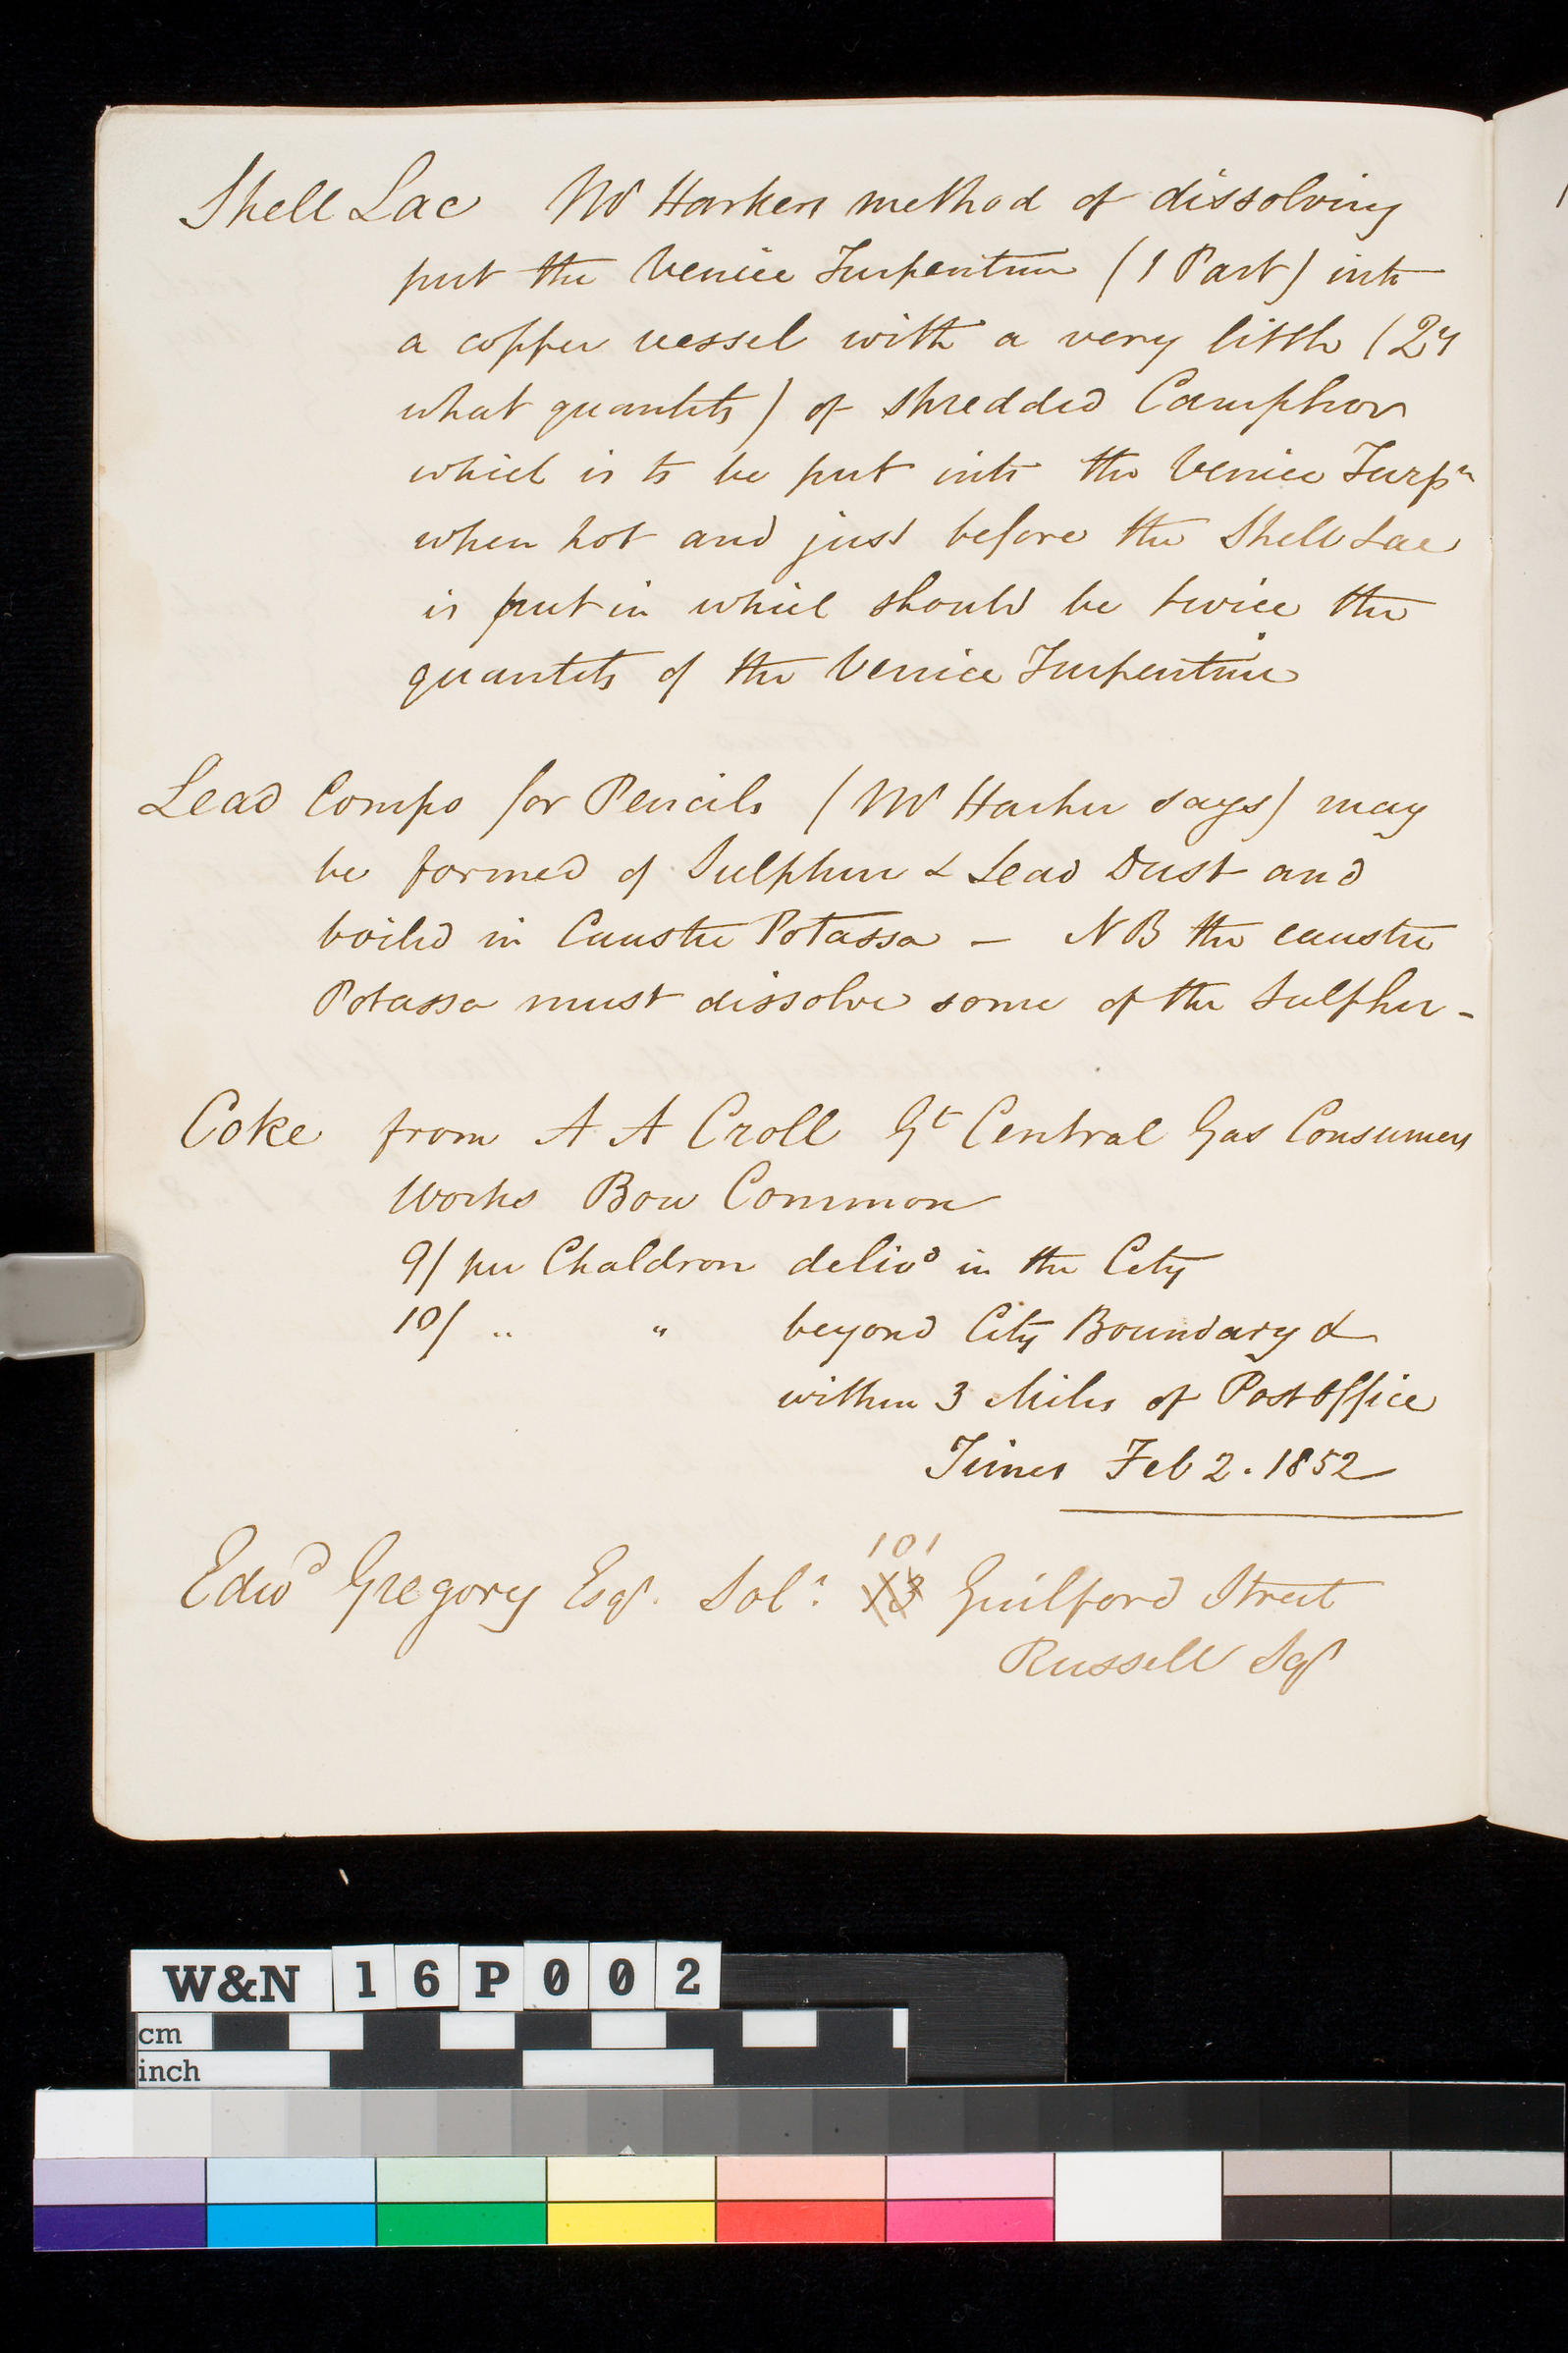 Shell Lac Mr Harkers method of dissolving
put the Venice Turpentine (1 Part) into
a copper vessel with a very little (Qy
what quantity) of shredded Camphor
which is to be put into the Venice Turpn
when hot and just before the Shell Lac
is put in which should be twice the
quantity of the Venice Turpentine
Lead Compo for Pencils (Mr Harker says) may
be formed of Sulphur & Lead Dust and
boiled in Caustic Potassa – NB the caustic
Potassa must dissolve some of the Sulphur –
Coke from A A Croll Gt Central Gas Consumers
Works Bow Common
9/ per Chaldron delivd in the City
10/ " " beyond City Boundary &
within 3 Miles of Post Office
Times Feb 2. 1852
101
Edwd Gregory Esqr. Solr. 13 Guilford Street
Russell Sqr
W&N 16P002
cm
inch